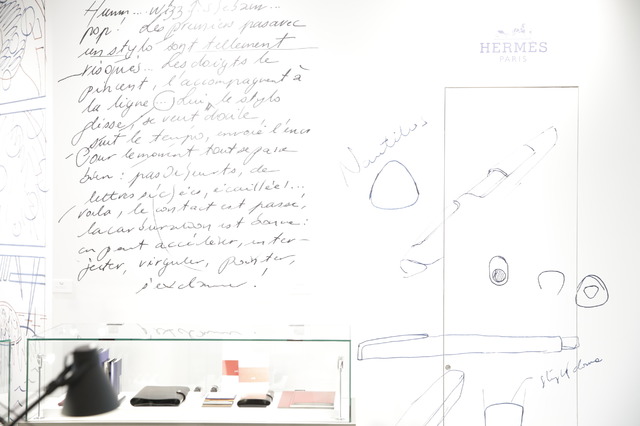 Humm...
pop! Les premiers pas avec
un stylo sont tellement
risqués... Les doigts le
pincent, l'accompagnent à
la ligne... Lui, le stylo
glisse, se veut docile,
suit le tempo, envoie l'encre
Pour le moment tout se passe
bien: pas de
lettres séchées, écaillées!...
voilà, le contact est passé,
la carburation est bonne:
on peut accélérer, inter-
jecter, virguler, pointer,
s'exclamer!
Nautilus
HERMÈS
PARIS